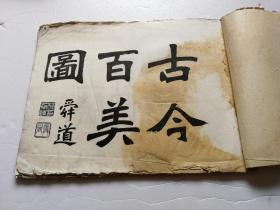 古今
百美
圖
舜道